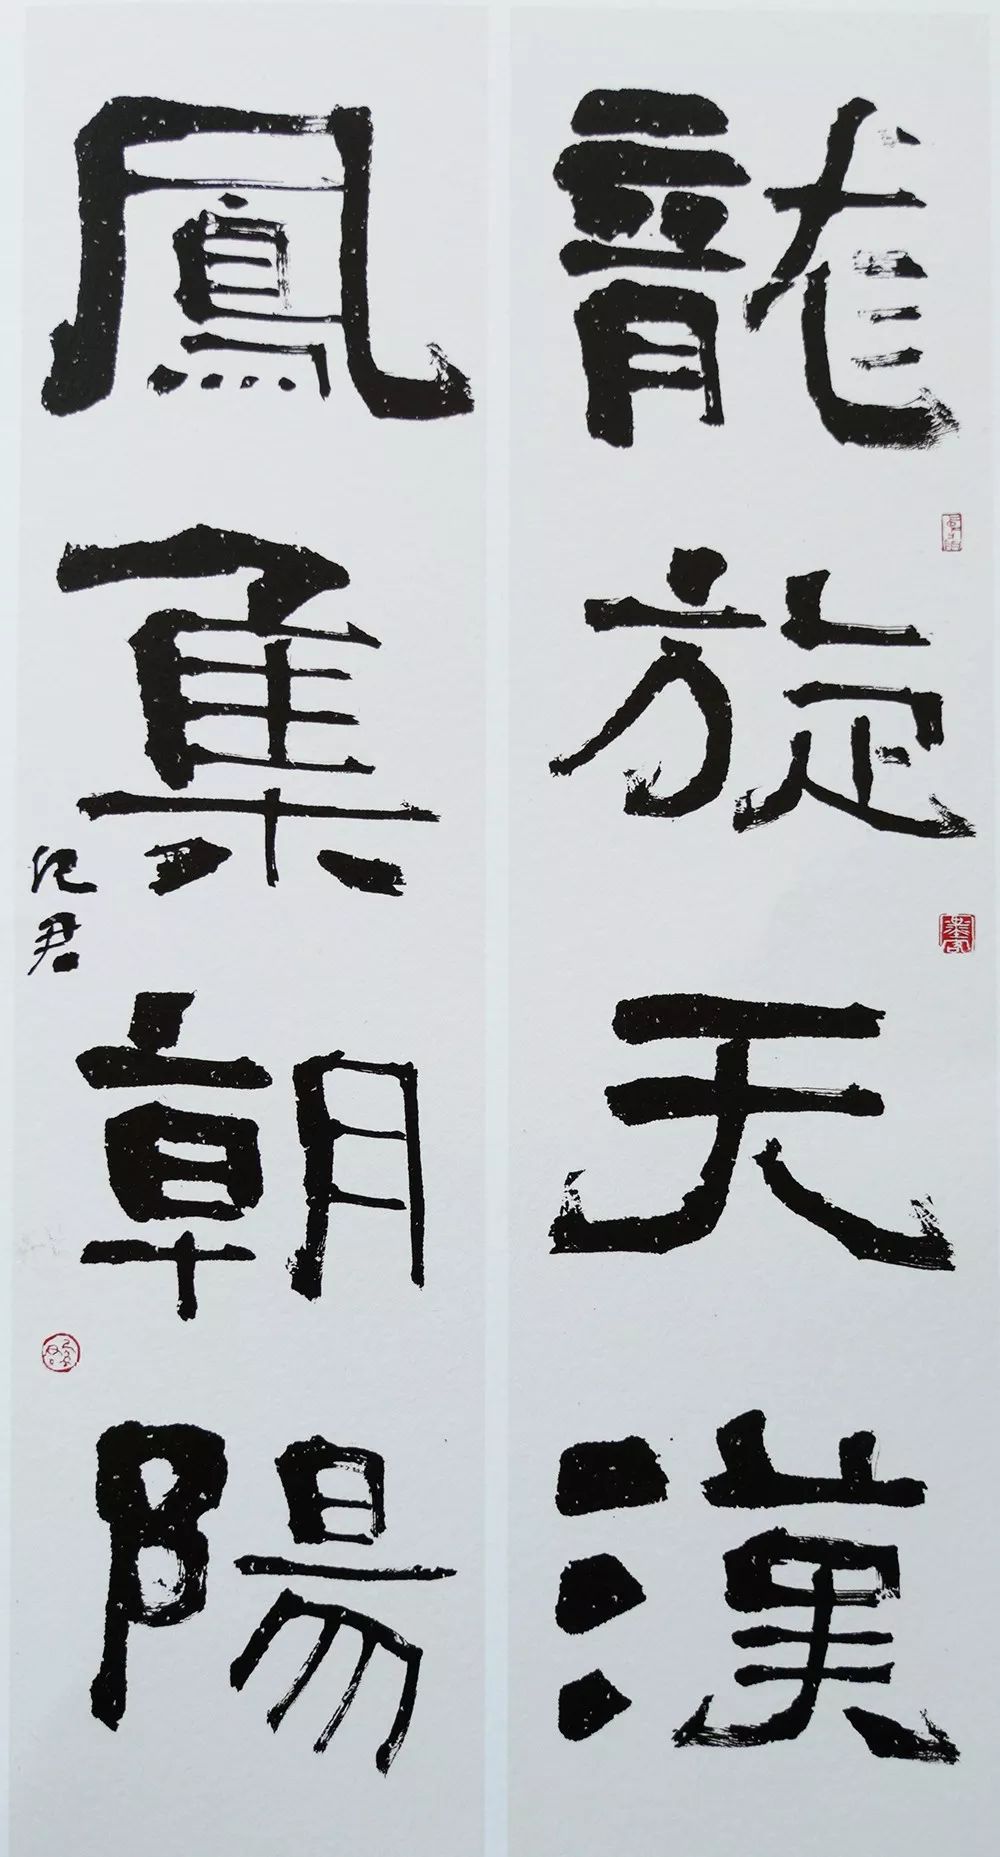 龍旋天漢
鳳集朝陽
纪君